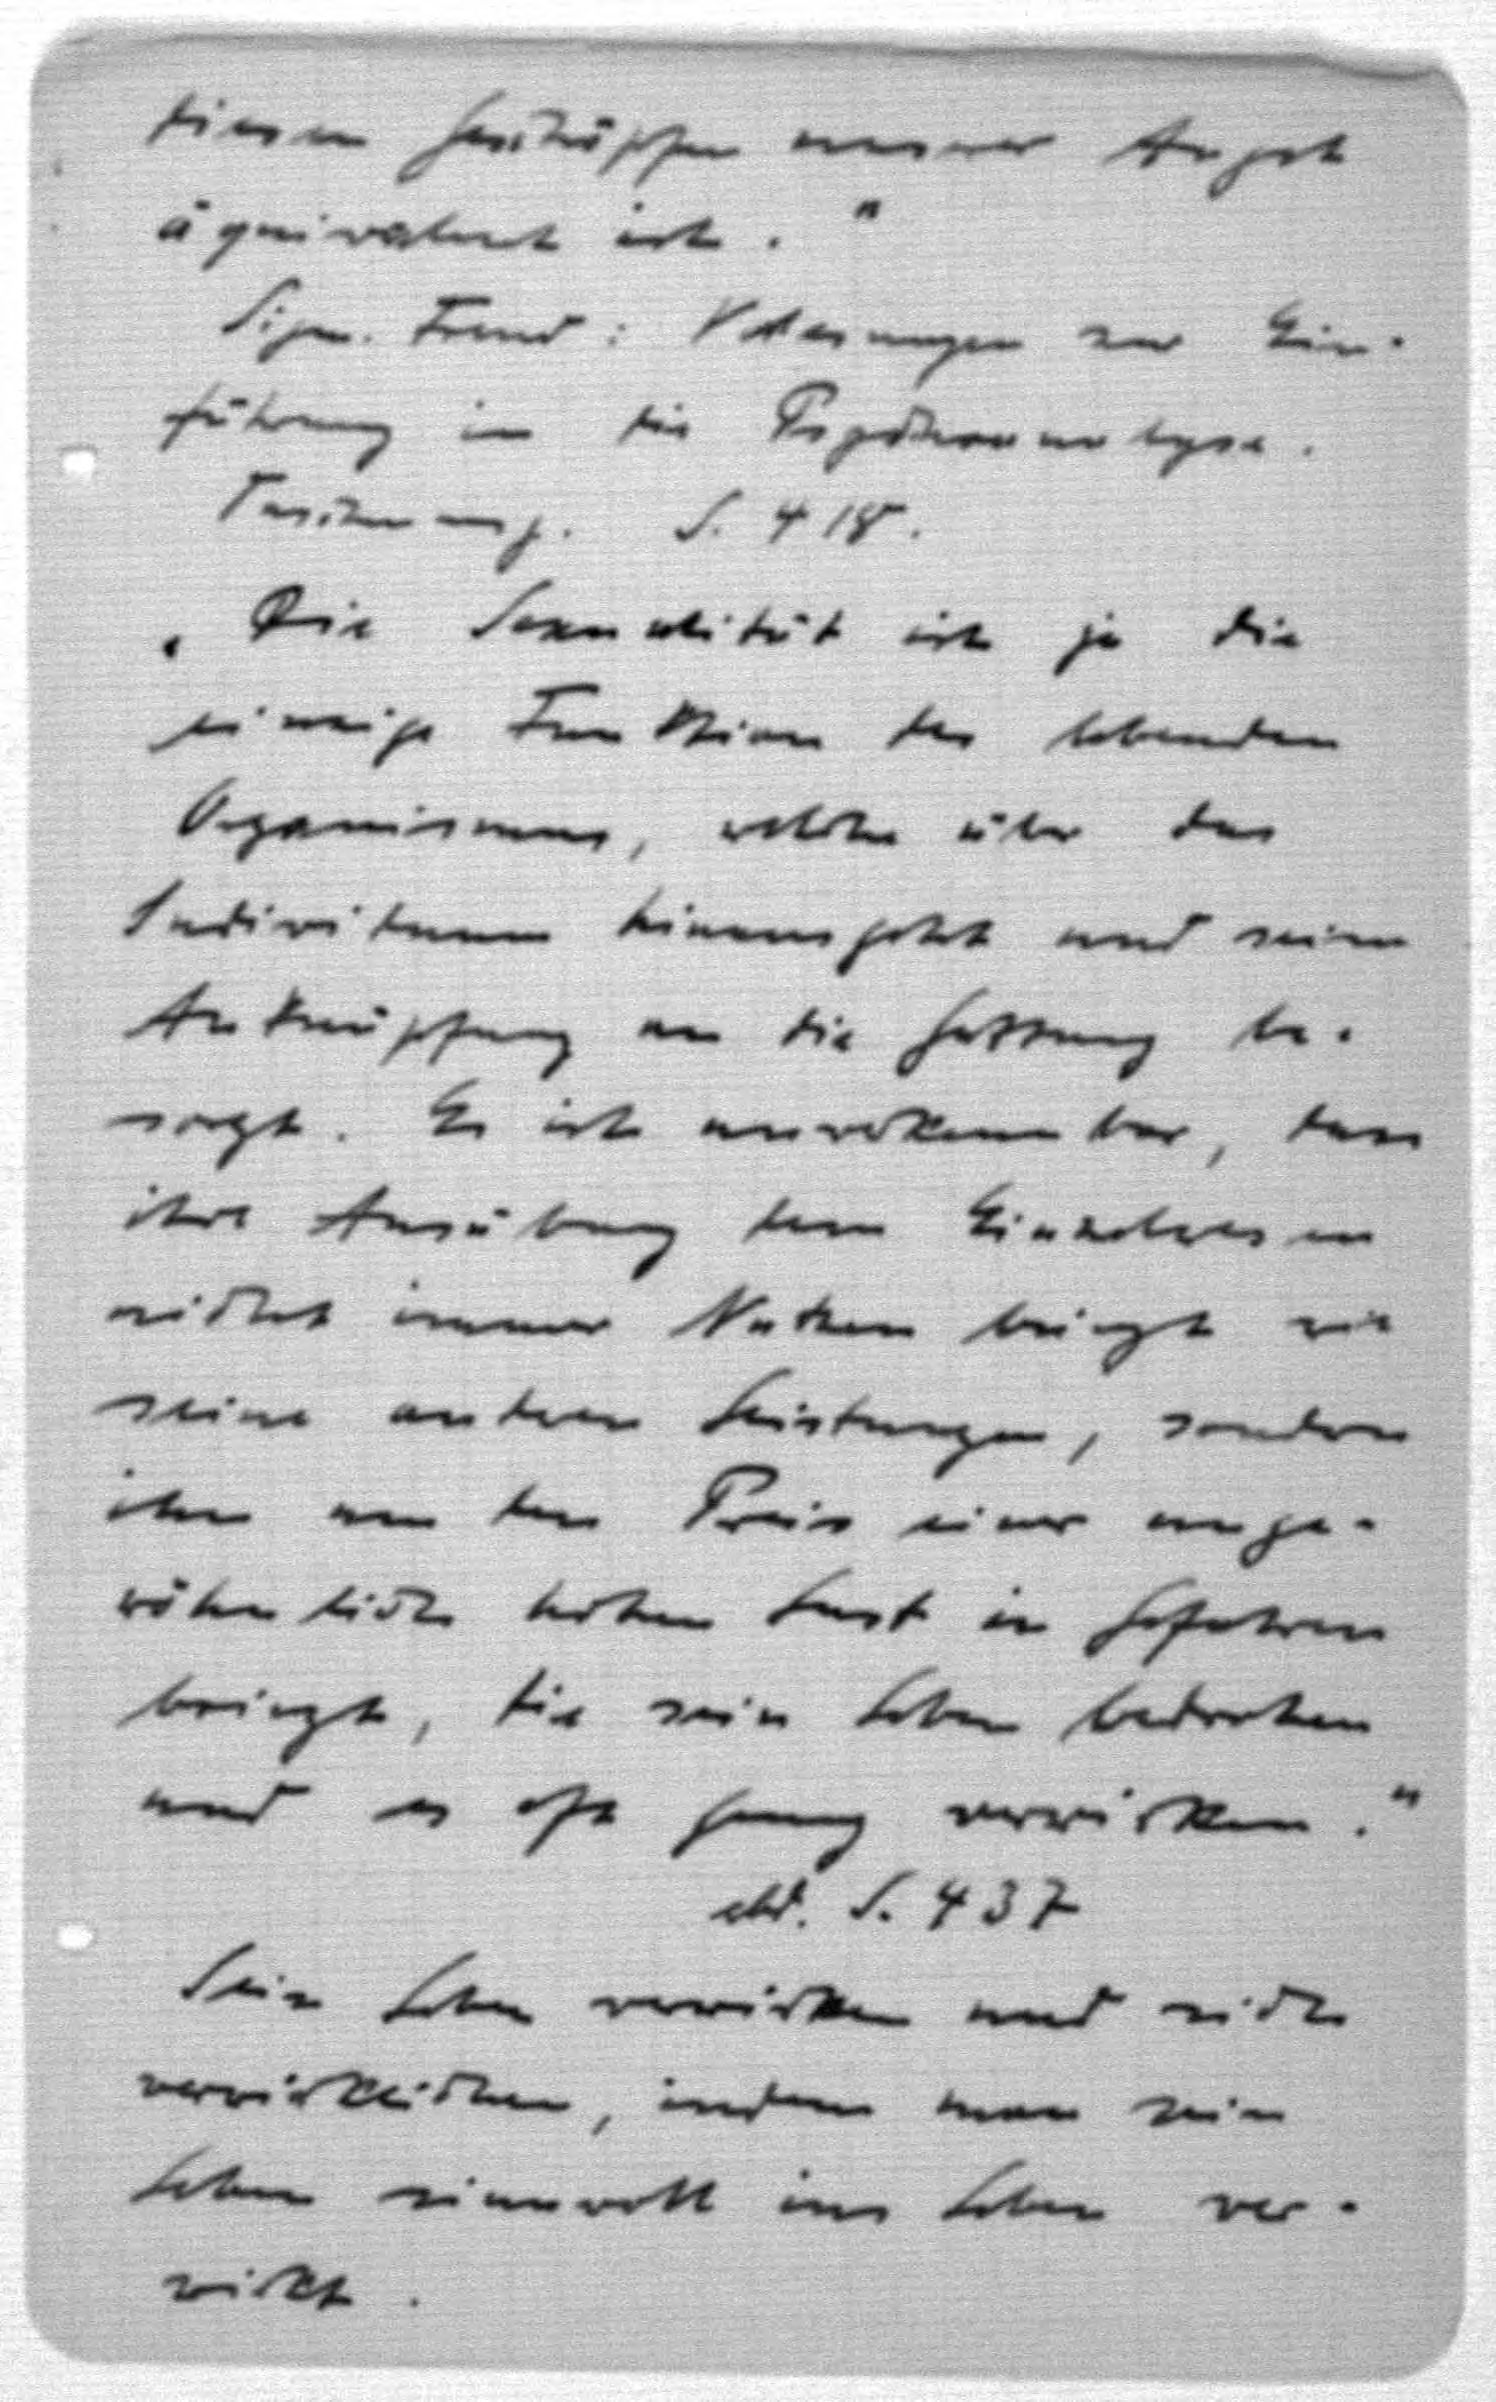 diesen Geschöpfen unserer Angst
äquivalent ist."
Sigm. Freud: Vorlesungen zur Ein-
führung in die Psychoanalyse.
Taschenausg. S. 418.
"Die Sexualität ist ja die
einzige Funktion des lebenden
Organismus, welche über das
Individuum hinausgeht und seine
Anknüpfung an die Gattung be-
sorgt. Es ist unverkennbar, dass
ihre Ausübung dem Einzelwesen
nicht immer Nutzen bringt wie
seine anderen Leistungen, sondern
ihn um den Preis einer unge-
wöhnlich hohen Lust in Gefahren
bringt, die sein Leben bedrohen
und es oft genug verwirken."
ebd. S. 437
Sein Leben verwirken und nicht
verwirklichen, indem man sein
Leben sinnvoll ins Leben ver-
wirkt.